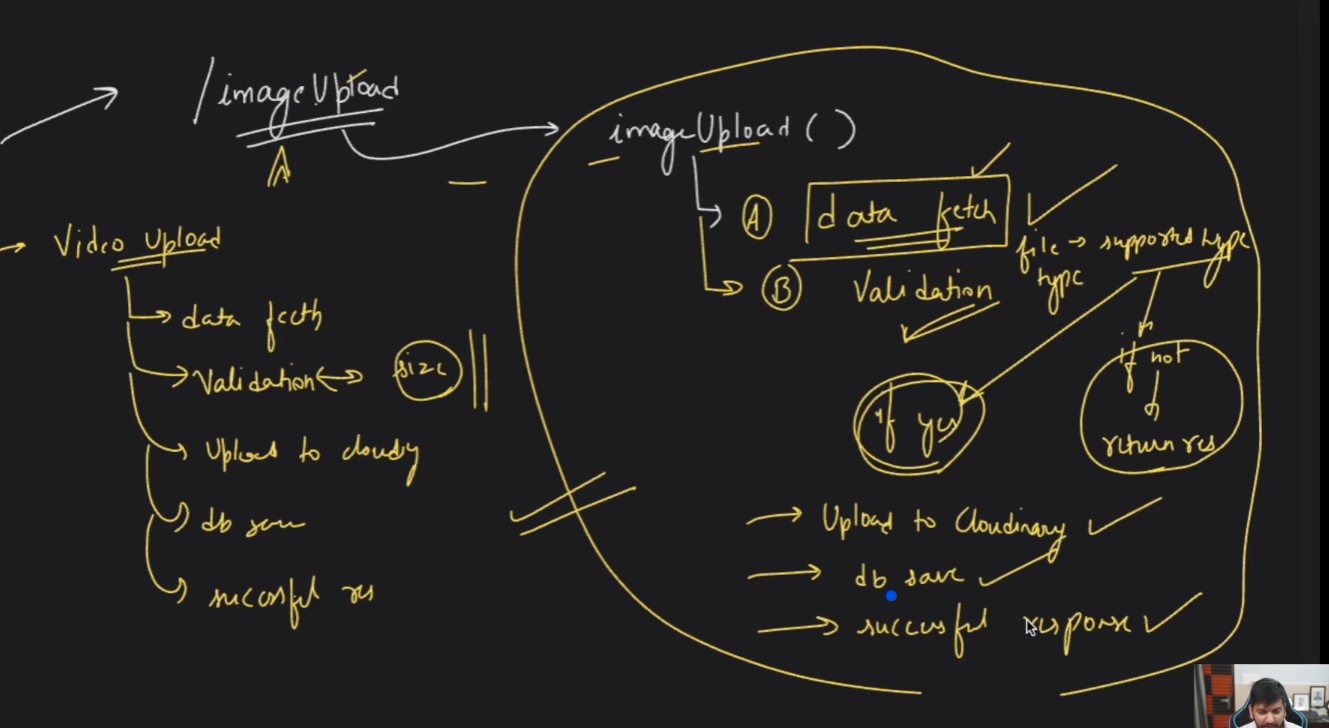 /imageUpload
A
Video Upload
data fecth
Validation
size
Upload to cloudiy
db save
succesful res
imageUpload ( )
A data fetch
B Validation
file → supported type
type
if yes
if not
return res
Upload to Cloudinary
db save
succesful response